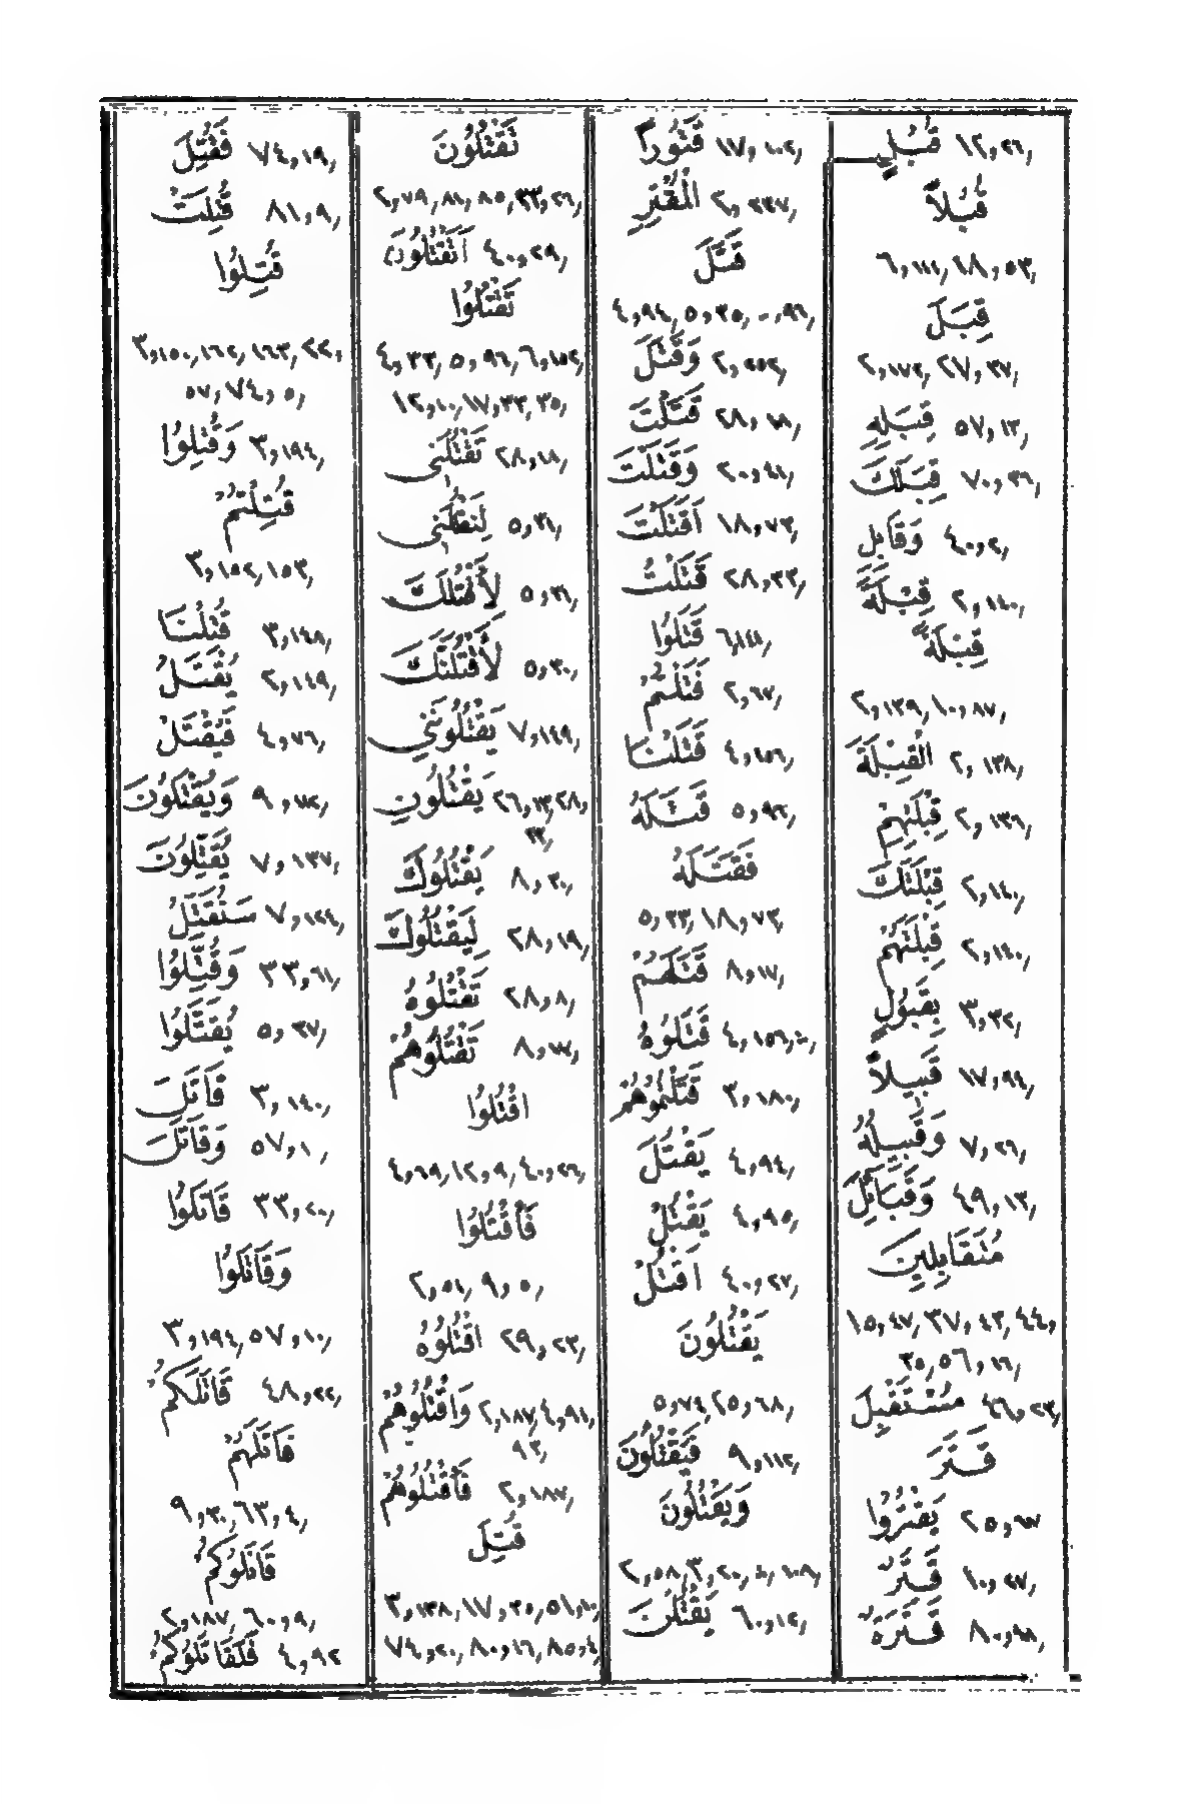 قُبُلٍ ١٢,٢٦,
قُبُلاً
٦,١١١,١٨,٥٣,
قِبَلَ
٢,١٧٢,٢٧,٣٧,
قِبَلِهِ ٥٧,١٣,
قِبَلَكَ ٧٠,٣٦,
وَقَابِلِ ٤٠,٢,
قِبْلَةً ٢,١٤٠,
قِبْلَةً
٢,١٣٩,١٠,٨٧,
الْقِبْلَةَ ٢,١٣٨,
قِبْلَتِهِمْ ٢,١٣٦,
قِبْلَتَكَ ٢,١٤٠,
قِبْلَتَهُمْ ٢,١٤٠,
بِقَبُولٍ ٣,٣٢,
قَبِيلاً ١٧,٩٤,
وَقَبِيلُهُ ٧,٢٦,
وَقَبَائِلَ ٤٩,١٣,
مُتَقَابِلِينَ
١٥,٤٧,٣٧,٤٣,٤٤,
٥٦,١٦,
مُسْتَقْبِلَ ٤٦,٢٣,
قَتَرَ
يَقْتُرُوا ٢٥,٦٧
قَتَرٌ ١٠,٢٧,
قَتَرَةٌ ٨٠,٤١,
قَتُورًا ١٧,١٠٢,
الْمُقْتِرِ ٢,٢٣٧,
قَتَلَ
٤,٩٤,٥,٣٥,٩٦,
وَقَتَلَ ٢,٢٥٢,
قَتَلْتَ ٢٨,١٨,
وَقَتَلْتَ ٢٠,٤١,
اَقَتَلْتَ ١٨,٧٣,
قَتَلْتُ ٢٨,٣٣,
قَتَلُوا ٦,١٤١,
قَتَلْتُمْ ٢,٦٧,
قَتَلْنَا ٤,١٥٦,
قَتَلَهُ ٥,٩٦,
فَقَتَلَهُ
٥,٣٣,١٨,٧٣,
قَتَلَهُمْ ٨,١٧,
قَتَلُوهُ ٤,١٥٦,
قَتَلْتُمُوهُمْ ٣,١٨٠,
يَقْتُلَ ٤,٩٤,
يَقْتُلْ ٤,٩٥,
اَقْتُلْ ٤٠,٢٧,
يَقْتُلُونَ
٥,٧٤,٢٥,٦٨,
فَيَقْتُلُونَ ٩,١١٢,
وَيَقْتُلُونَ
٢,٥٨,٣,٢٠,
يَقْتُلْنَ ٦٠,١٢,
تَقْتُلُونَ
٢,٧٩,٨١,٨٥,٣٣,٢٦,
اَتَقْتُلُونَ ٤٠,٢٩,
تَقْتُلُوا
٤,٣٣,٥,٩٦,٦,١٥٢,
١٢,١٠,١٧,٣٣,٣٥,
تَقْتُلَنِي ٢٨,١٨,
لِتَقْتُلَنِي ٥,٣١,
لِأَقْتُلَكَ ٥,٣١,
لَأَقْتُلَنَّكَ ٥,٣٠,
يَقْتُلُونَنِي ٧,١٤٩,
يَقْتُلُونِ ٢٦,١٣,٢٨,
٣٣,
يَقْتُلُوكَ ٨,٣٠,
لِيَقْتُلُوكَ ٢٨,١٩,
تَقْتُلُوهُ ٢٨,٨,
تَقْتُلُوهُمْ ٨,١٧,
اقْتُلُوا
٤,٦٩,١٢,٩,٤٠,٢٦,
فَاقْتُلُوا
٢,٥١,٩,٥,
اقْتُلُوهُ ٢٩,٢٣,
وَاقْتُلُوهُمْ ٢,١٨٧,٤,٩١,
٩٣,
فَاقْتُلُوهُمْ ٢,١٨٧,
قُتِلَ
٣,١٣٨,١٧,٣٥,٥١,١٠,
٧٤,٢٠,٨٠,١٦,٨٥,٤,
فَقُتِلَ ٧٤,١٩,
قُتِلَتْ ٨١,٩,
قُتِلُوا
٣,١٥٠,١٦٢,١٦٣,٢٢,
٥٧,٧٤,٥,
وَقُتِلُوا ٣,١٩٤,
قُتِلْتُمْ
٣,١٥٢,١٥٣,
قُتِلْنَا ٣,١٤٨,
يُقْتَلُ ٢,١٤٩,
فَيُقْتَلْ ٤,٧٦,
وَيُقْتَلُونَ ٩,١١٢,
يُقَتِّلُونَ ٧,١٣٧,
سَنُقَتِّلُ ٧,١٢٤,
وَقُتِّلُوا ٣٣,٦١,
يُقَتَّلُوا ٥,٣٧,
قَاتَلَ ٣,١٤٠,
وَقَاتَلَ ٥٧,١٠,
قَاتَلُوا ٣٣,٢٠,
وَقَاتَلُوا
٣,١٩٤,٥٧,١٠,
قَاتَلَكُمُ ٤٨,٢٢,
قَاتَلَهُمْ
٩,٣٠,٦٣,٤,
قَاتَلُوكُمْ
٢,١٨٧,٦٠,٩,
فَلَقَاتَلُوكُمْ ٤,٩٢